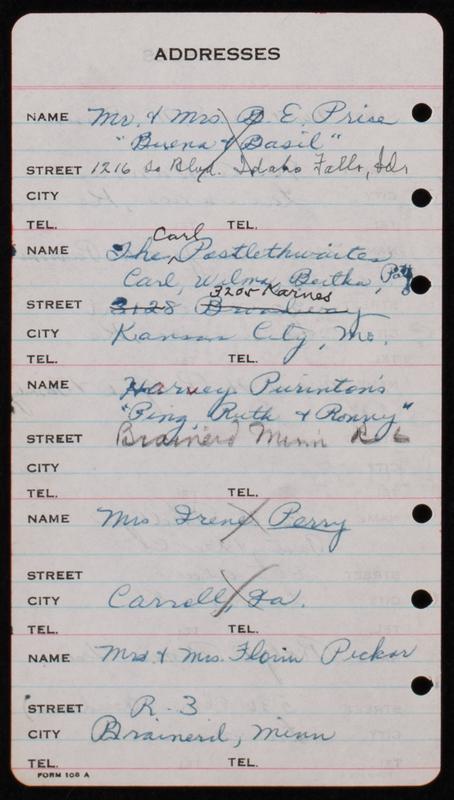 ADDRESSES
NAME Mr. & Mrs. B. E. Price
"Buena & Basil"
STREET 1216 So Blvd. Idaho Falls, Ida
CITY
TEL. TEL.
NAME The Carl Postlethwaites
Carl, Wilma, Bertha, Patty
3205 Karnes
STREET 3128 Broadway
CITY Kansas City, Mo.
TEL. TEL.
NAME Harvey Purinton's
"Ping, Ruth & Ronny"
STREET Brainerd Minn R 6
CITY
TEL. TEL.
NAME Mrs Irene Perry
STREET
CITY Carroll, Ia.
TEL. TEL.
NAME Mr & Mrs. Florin Pickar
STREET R-3
CITY Brainerd, Minn
TEL. TEL.
FORM 106 A